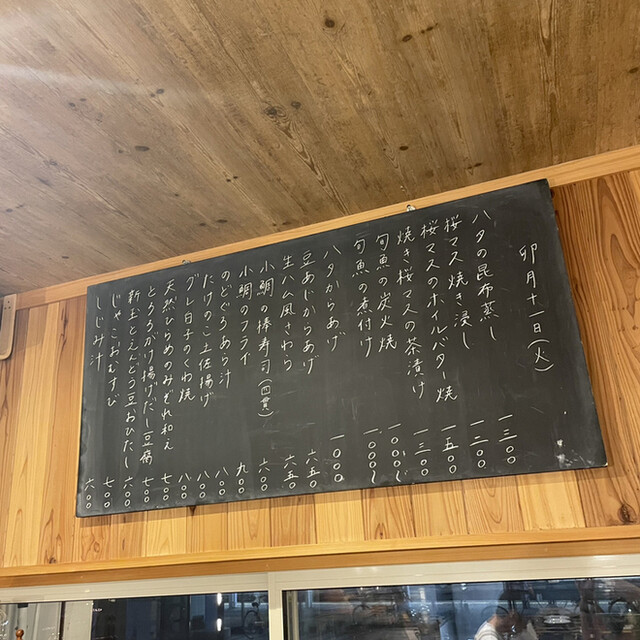 卯月十一日(火)
ハタの昆布蒸し 一三〇〇
桜マス焼き浸し 一二〇〇
桜マスのホイルバター焼 一五〇〇
焼き桜マスの茶漬け 一三〇〇
旬魚の炭火焼 一〇〇〇〜
旬魚の煮付け 一〇〇〇〜
ハタからあげ 一〇〇〇
豆あじからあげ 六五〇
生ハム風さわら 六五〇
小鯛の棒寿司(四貫) 六〇〇
小鯛のフライ 九〇〇
のどぐろあら汁 八〇〇
たけのこ土佐揚げ 八〇〇
グレ白子のくわ焼 八〇〇
天然ひらめのみぞれ和え 七〇〇
とろろがけ揚げだし豆腐 七〇〇
新玉とえんどう豆おひたし 六〇〇
じゃこおむすび 七〇〇
しじみ汁 六〇〇